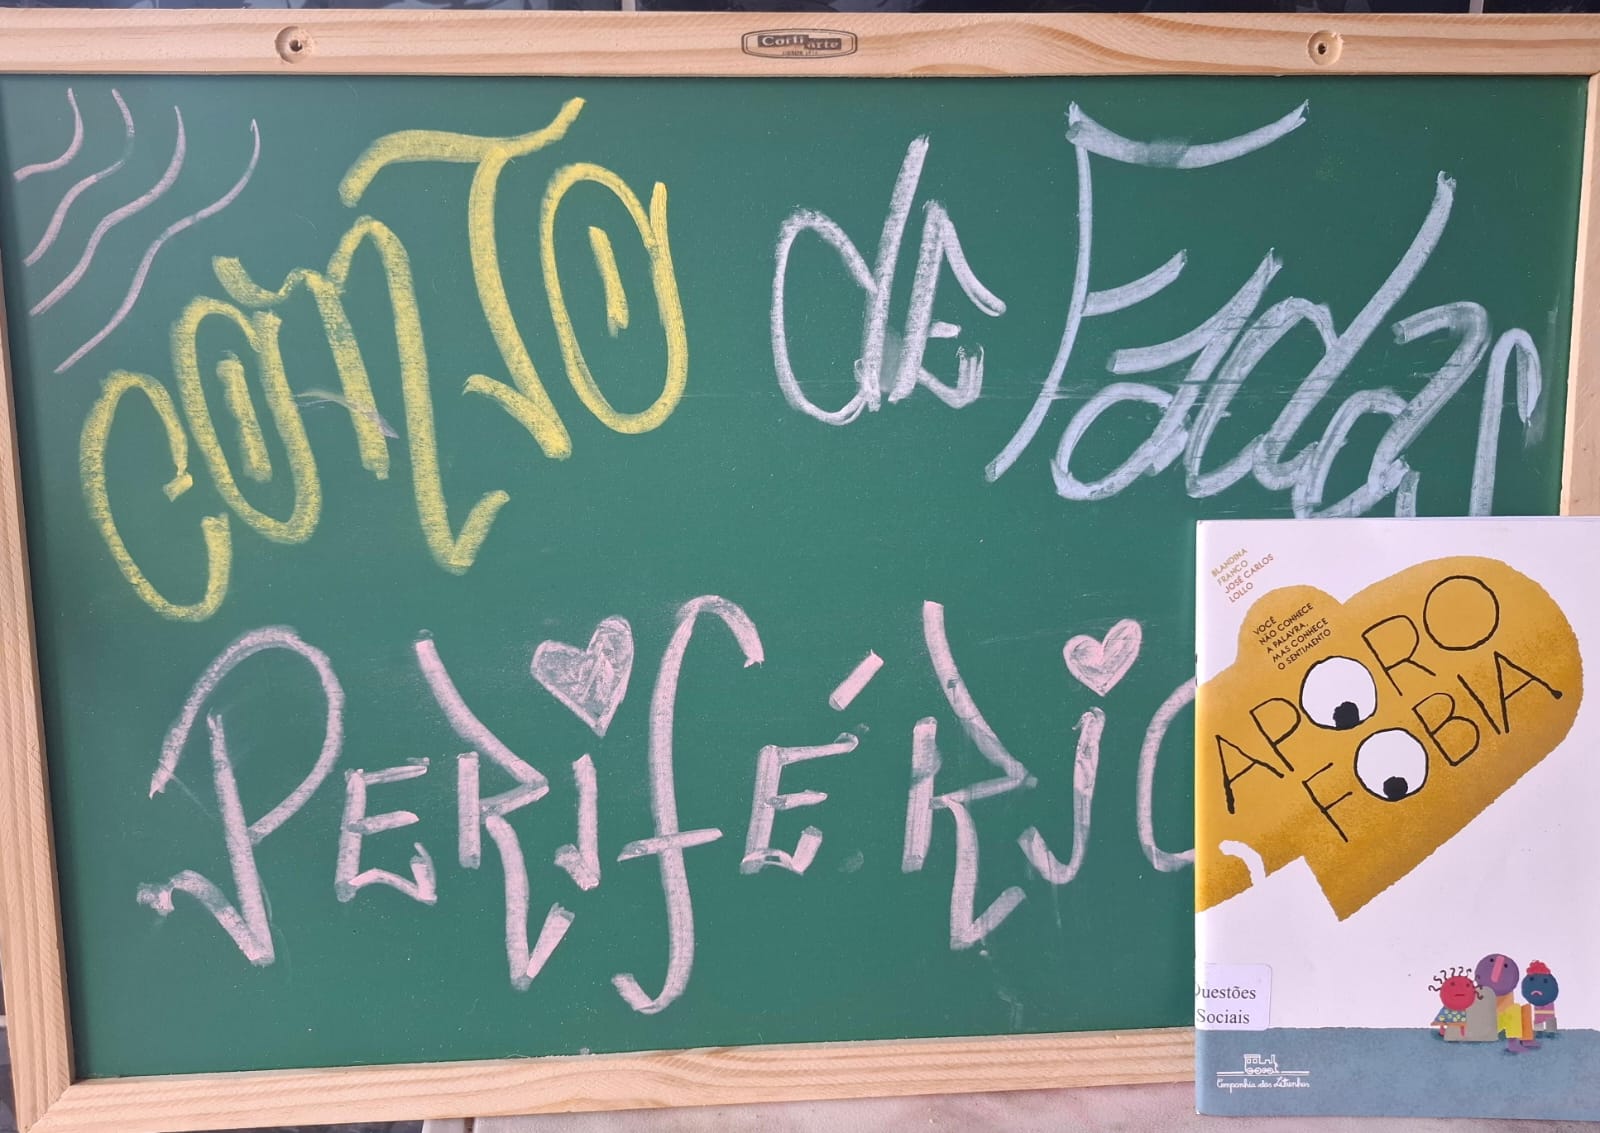 Corti arte
CONTO de Fadas
PERIFÉRIC
BLANDINA
FRANCO
JOSÉ CARLOS
LOLLO
VOCÊ
NÃO CONHECE
A PALAVRA,
MAS CONHECE
O SENTIMENTO
APORO
FOBIA
uestões
Sociais
Companhia das Letrinhas